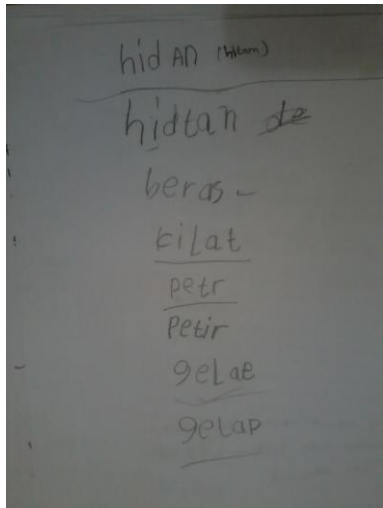 hidAn (hitam)
hidtan
beras -
kilat
petr
Petir
gelae
gelap